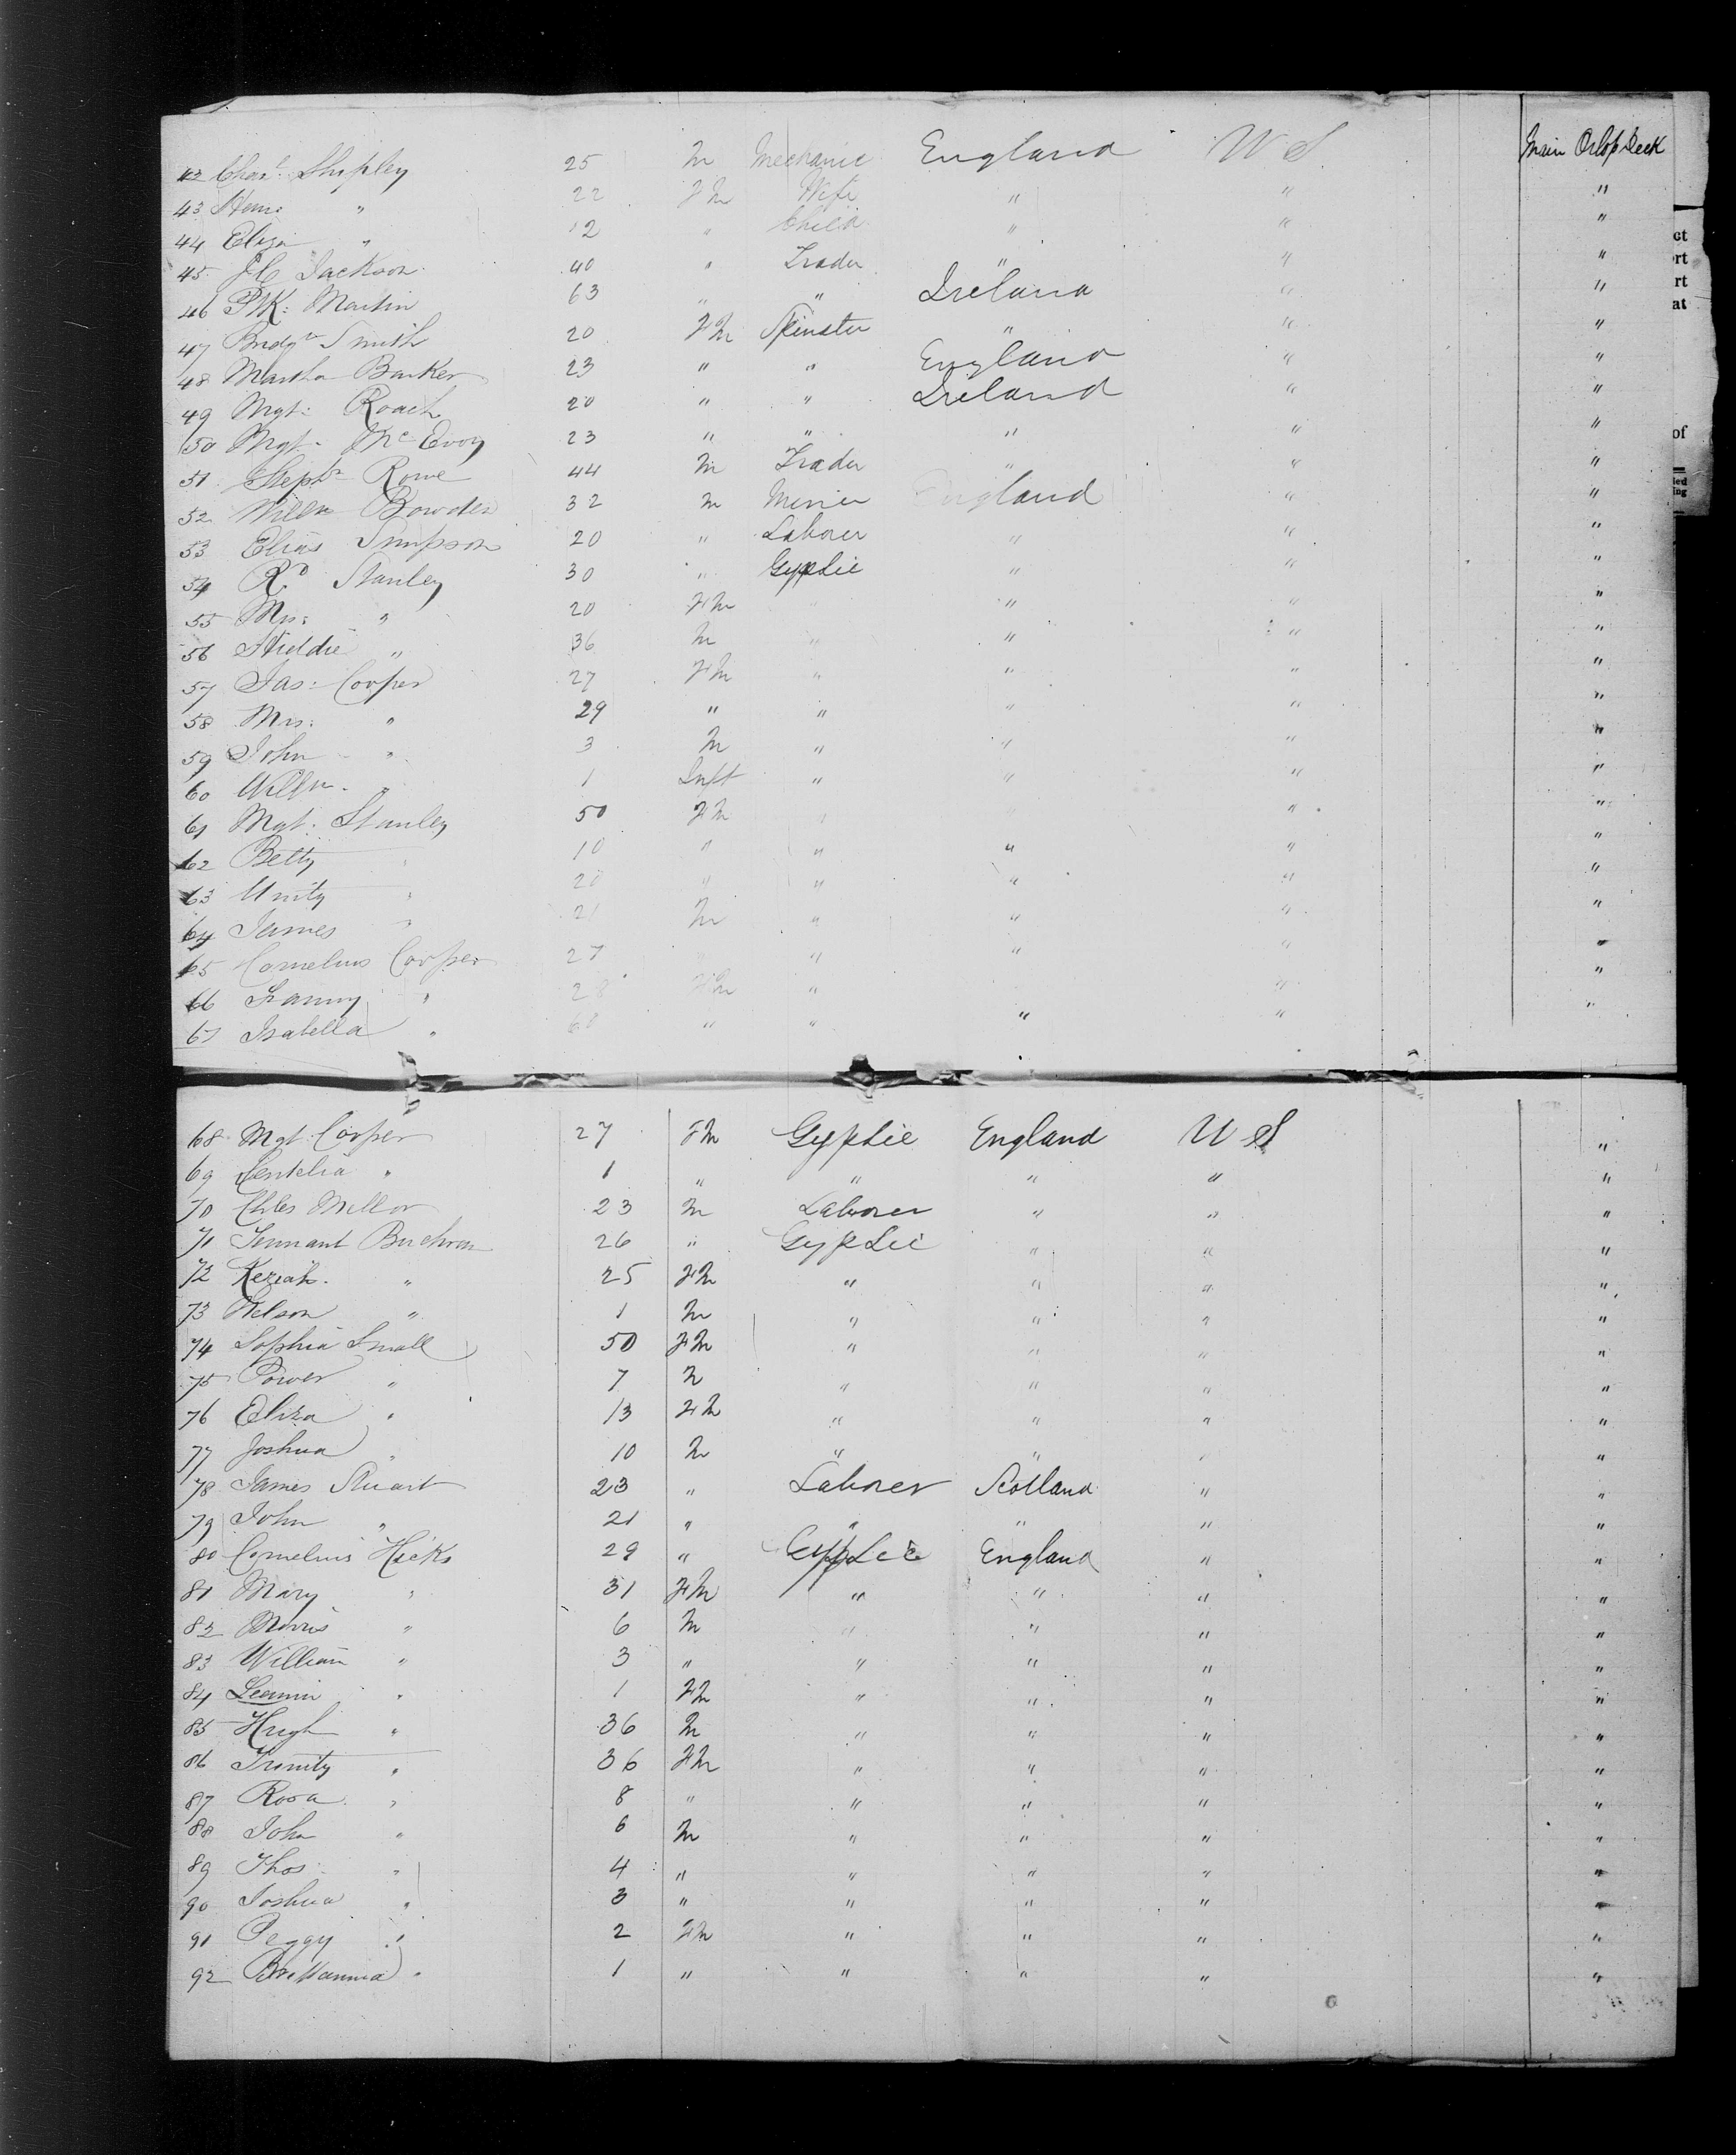 42 Chas. Shipley 25 M Mechanic England U S Main Orlop Deck
43 " 22 Fm Wife " " "
44 Eliza " 12 " Child " " "
45 J C Jackson 40 " Trader " " "
46 Martin 63 " " Ireland " "
47 Bridgt Smith 20 Fm Spinster " " "
48 Martha Barker 23 " " England " "
49 Mgt: Roach 20 " " Ireland " "
50 Mgt: McEvoy 23 " " " " "
51 Stephn Rowe 44 M Trader " " "
52 Willm Bowden 32 M Miner England " "
53 Elias Simpson 20 " Laborer " " "
54 Rd Stanley 30 " Gypsie " " "
55 Mrs: " 20 Fm " " " "
56 " 36 M " " " "
57 Jas: Cooper 27 Fm " " " "
58 Mrs: " 29 " " " " "
59 John " 3 M " " " "
60 Willm. " 1 Inft " " " "
61 Mgt: Stanley 50 Fm " " "
62 Betty " 10 " " " " "
63 Unity " 20 " " " " "
64 James " 21 M " " " "
65 Cornelius Cooper 27 " " " " "
66 Franny " 28 Fm " " "
67 Isabella " 60 " " " "
68 Mgt Cooper 27 Fm Gypsie England U S "
69 " 1 " " " " "
70 Chles Millor 23 M Laborer " " "
71 Tennant 26 " Gypsie " " "
72 Keziah " 25 Fm " " " "
73 Nelson " 1 M " " " "
74 Sophia Small 50 Fm " " " "
75 Power " 7 M " " " "
76 Eliza " 13 Fm " " " "
77 Joshua " 10 M " " " "
78 James Stuart 23 " Laborer Scotland " "
79 John " 21 " " " " "
80 Cornelius Hicks 29 " Gypsie England " "
81 Mary " 31 Fm " " " "
82 Morris " 6 M " " " "
83 William " 3 " " " " "
84 " 1 Fm " " " "
85 Hugh " 36 M " " " "
86 Trinity " 36 Fm " " " "
87 Rosa " 8 " " " " "
88 John " 6 M " " " "
89 Thos " 4 " " " " "
90 Joshua " 3 " " " " "
91 Peggy " 2 Fm " " " "
92 Brittannia " 1 " " " " "